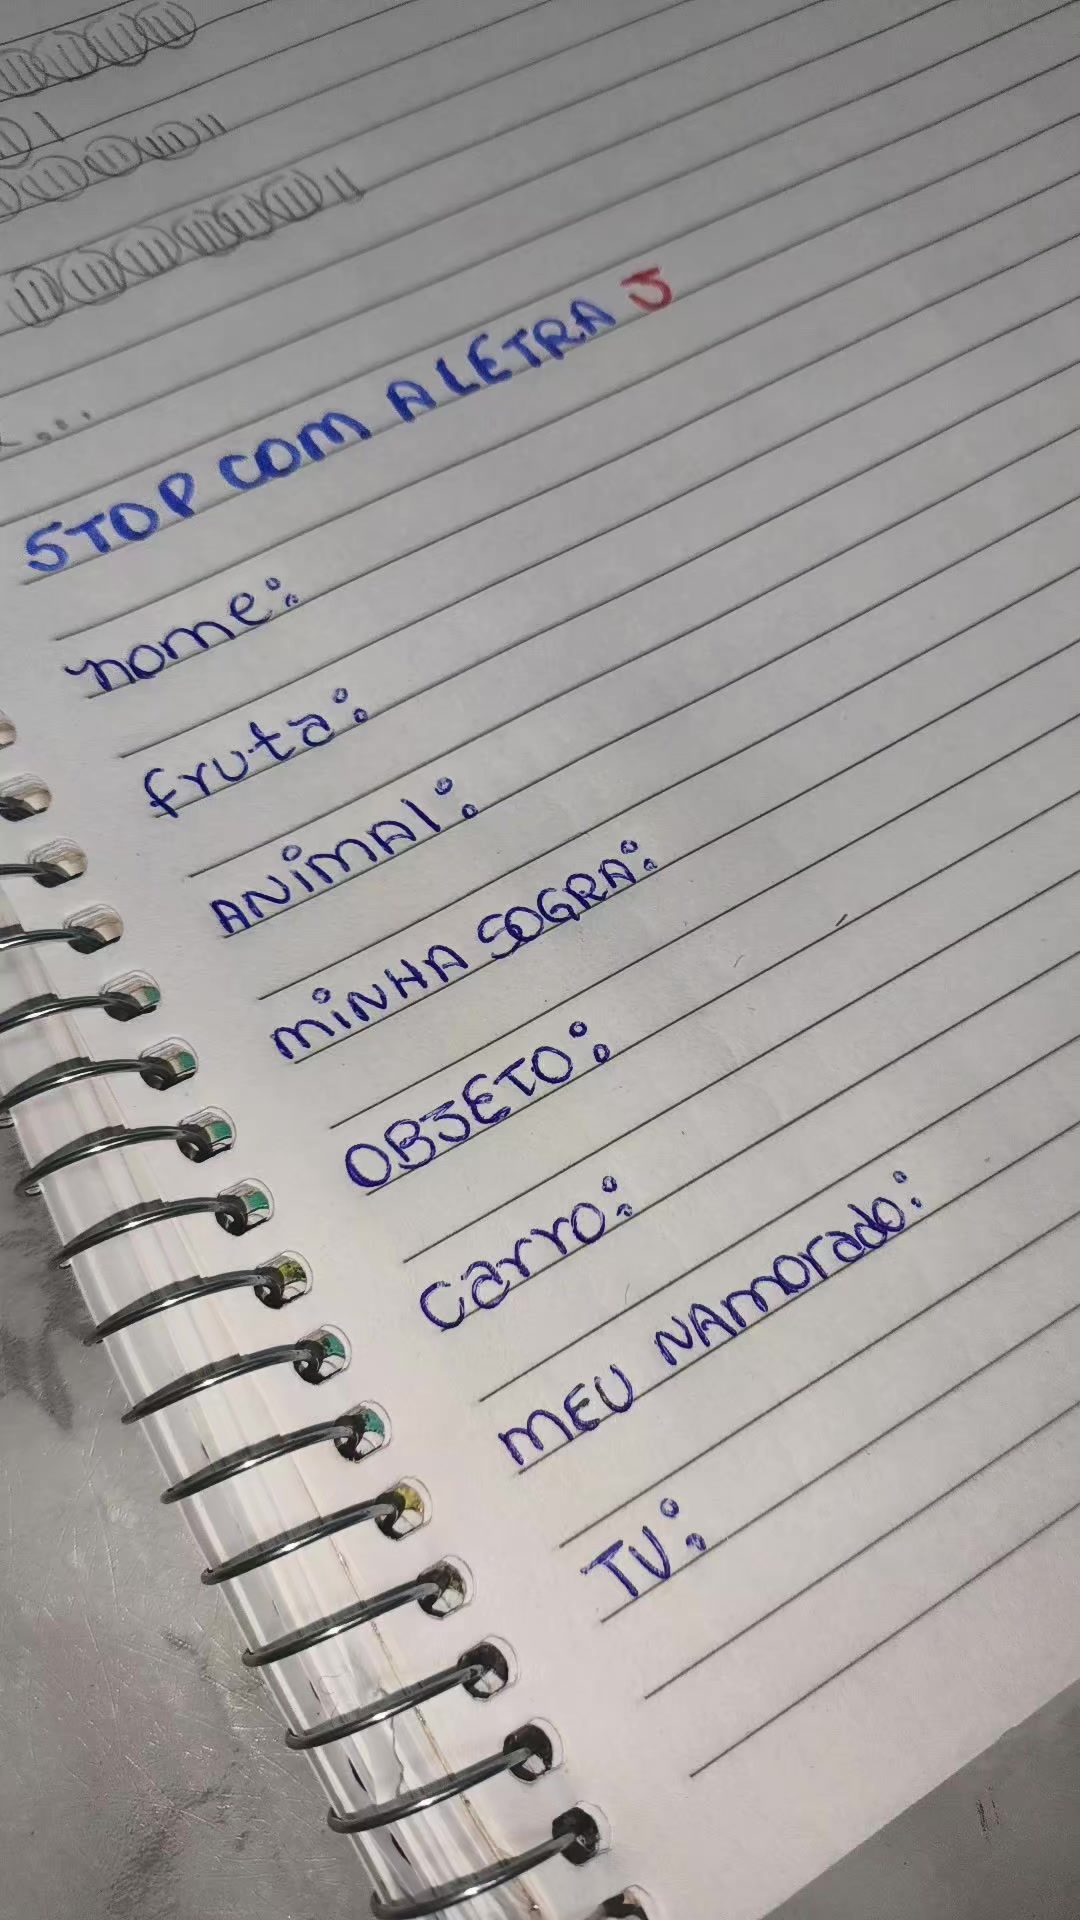 STOP COM A LETRA J
nome:
fruta:
ANiMAl:
MiNHA SOGRA:
OBJETO:
carro:
MEU NAMOrado:
TV: